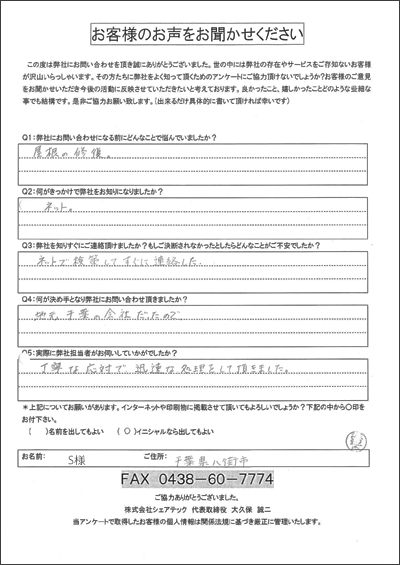 お客様のお声をお聞かせください
この度は弊社にお問い合わせを頂き誠にありがとうございました。世の中には弊社の存在やサービスをご存知ないお客様
が沢山いらっしゃいます。その方たちに弊社をよく知って頂くためのアンケートにご協力頂けないでしょうか?お客様のご意見
をお聞かせいただき今後の活動に反映させていただきたいと考えております。良かったこと、嬉しかったことどのような些細な
事でも結構です。是非ご協力お願い致します。(出来るだけ具体的に書いて頂ければ幸いです)
Q1:弊社にお問い合わせになる前にどんなことで悩んでいましたか?
屋根の修復。
Q2:何がきっかけで弊社をお知りになりましたか?
ネット。
Q3:弊社を知りすぐにご連絡頂けましたか?もしご決断されなかったとしたらどんなことがご不安でしたか?
ネットで検索してすぐに連絡した。
Q4:何が決め手となり弊社にお問い合わせ頂きましたか?
地元千葉の会社だったので
Q5:実際に弊社担当者がお伺いしていかがでしたか?
丁寧な応対で迅速な処理をして頂きました。
*上記についてお願いがあります。インターネットや印刷物に掲載させて頂いてもよろしいでしょうか?下記の中から〇印を
お付下さい。
( )名前を出してもよい (○)イニシャルなら出してもよい
お名前: S様 ご住所: 千葉県八街市
FAX 0438-60-7774
ご協力ありがとうございました。
株式会社シェアテック 代表取締役 大久保 誠二
当アンケートで取得したお客様の個人情報は関係法規に基づき厳正に管理いたします。